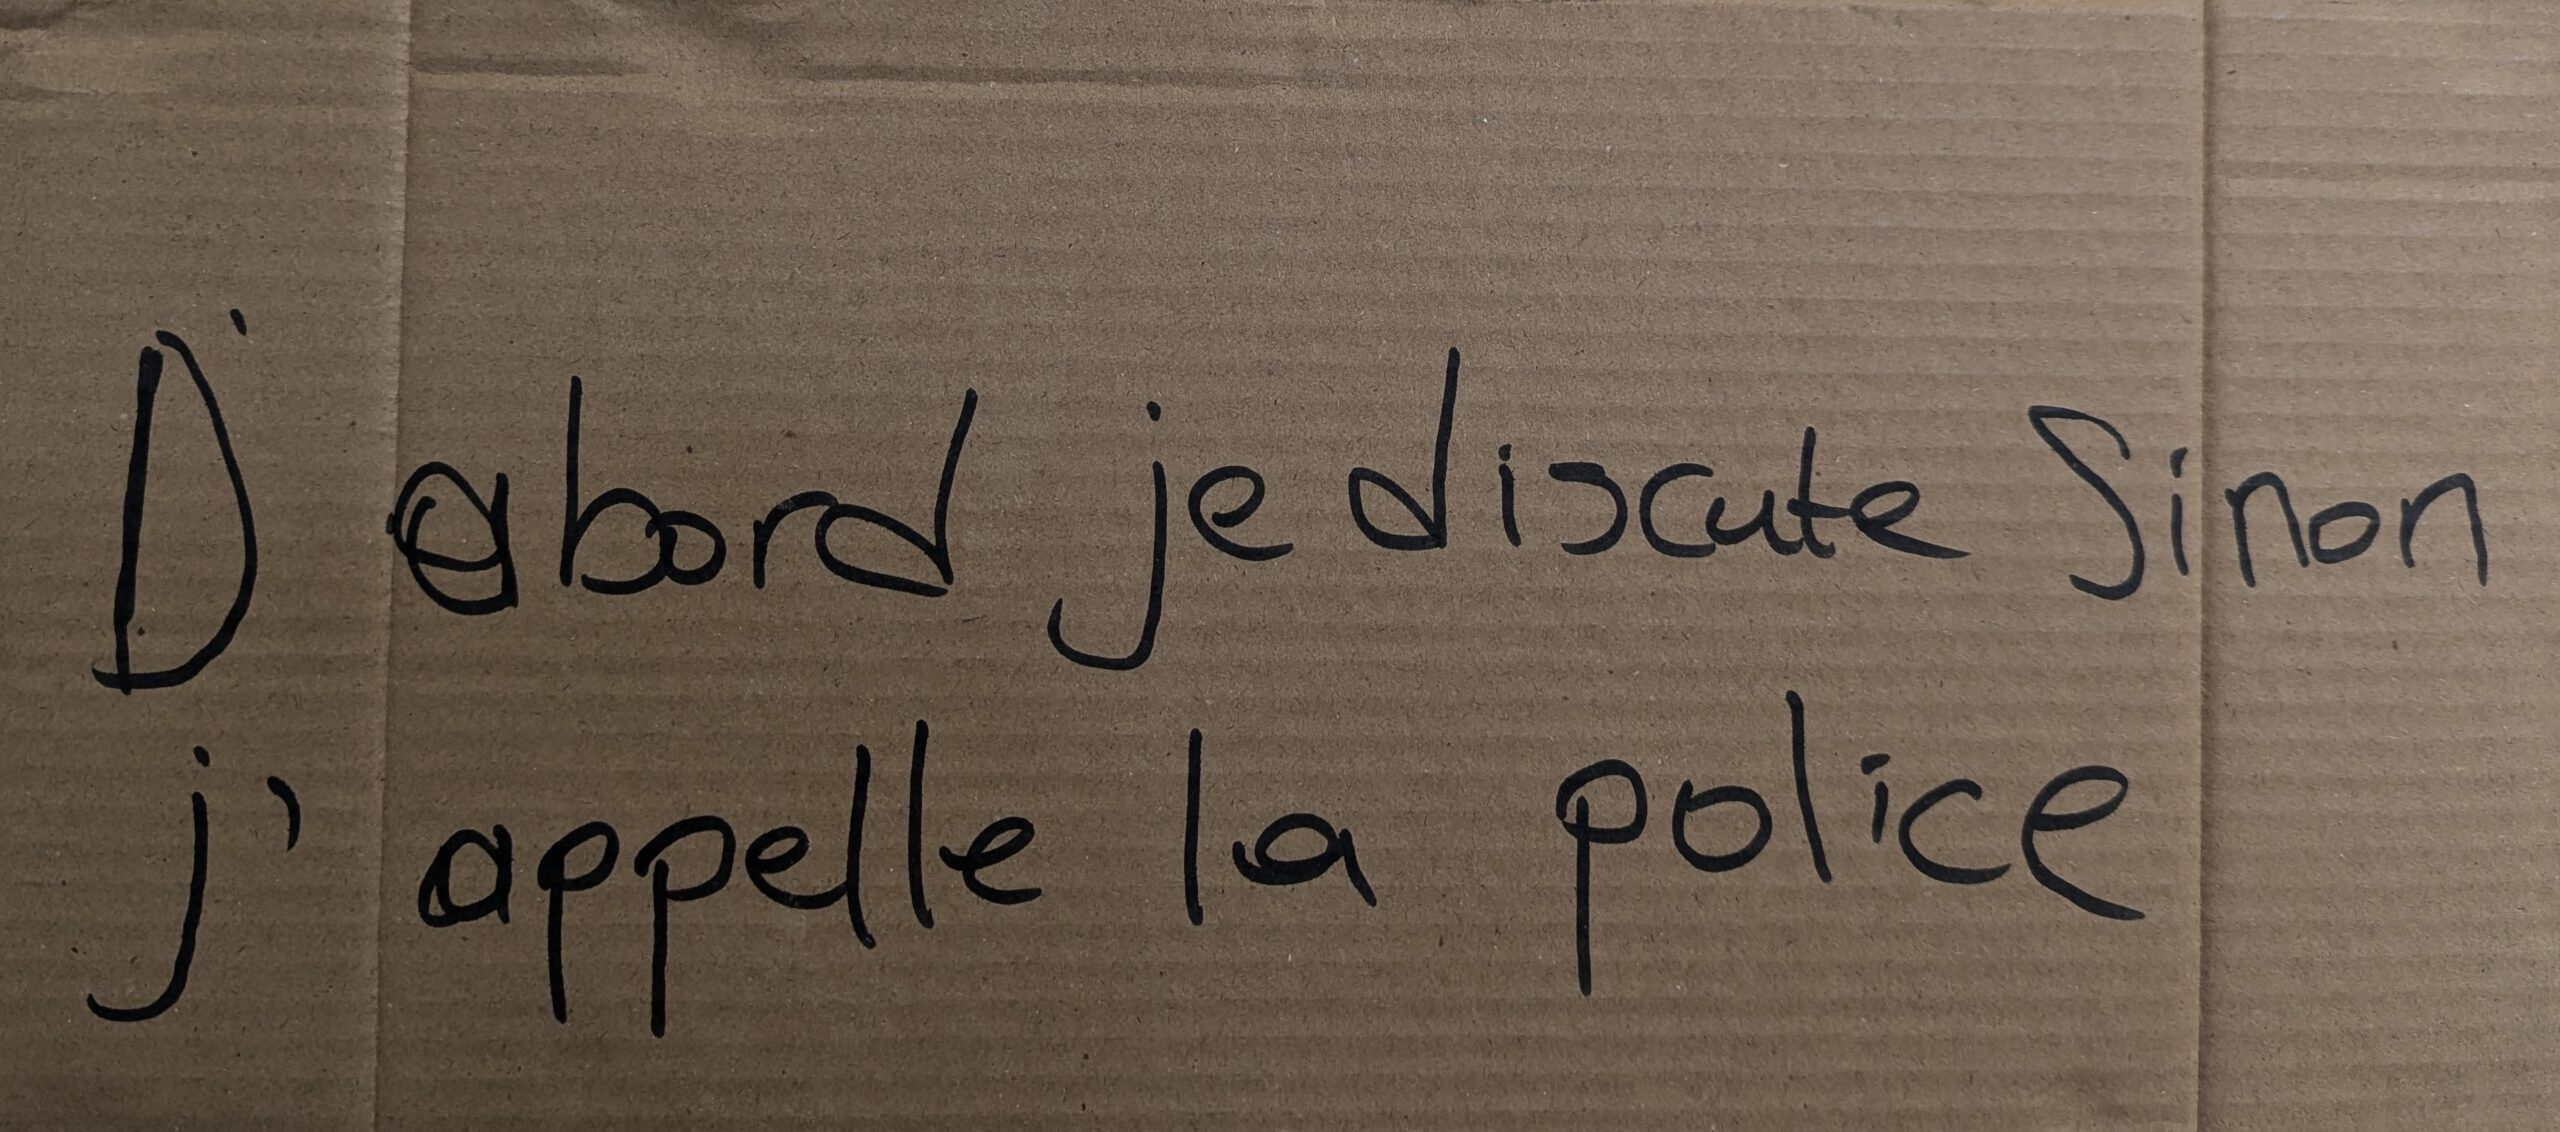 D'abord je discute Sinon
j'appelle la police